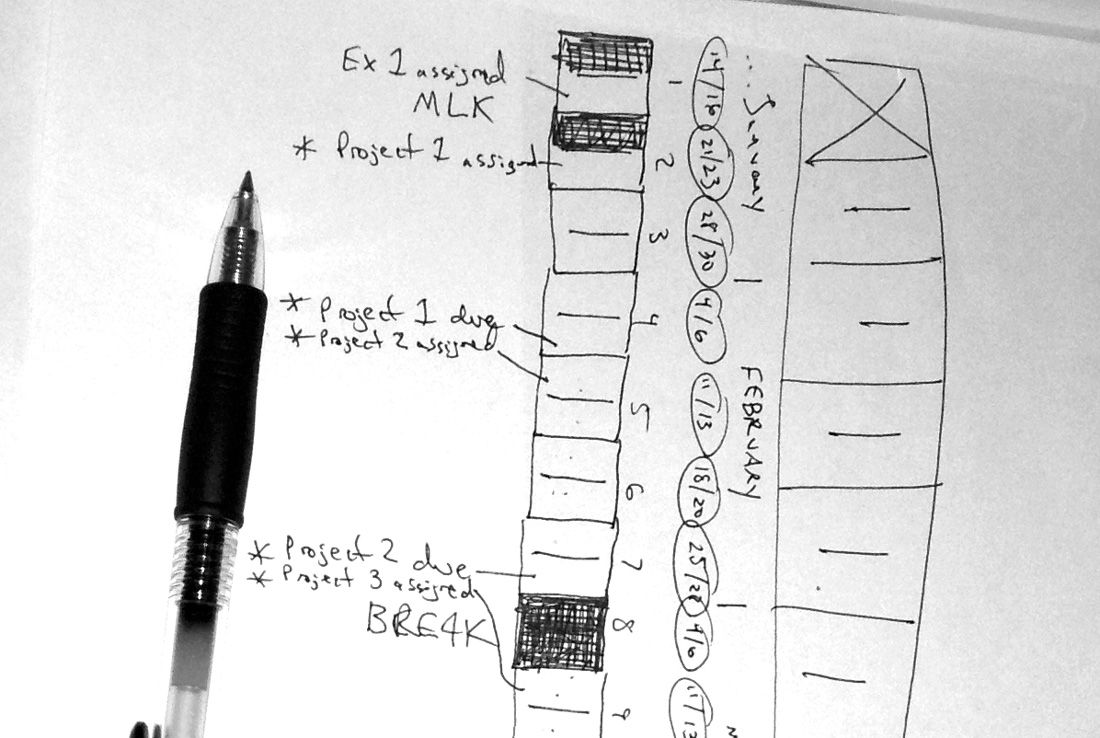 Ex 1 assigned
MLK
* Project 1 assigned
* Project 1 due
* Project 2 assigned
* Project 2 due
* Project 3 assigned
BREAK
1
2
3
4
5
6
7
8
9
14/16
21/23
28/30
4/6
11/13
18/20
25/28
4/6
11/13
January
FEBRUARY